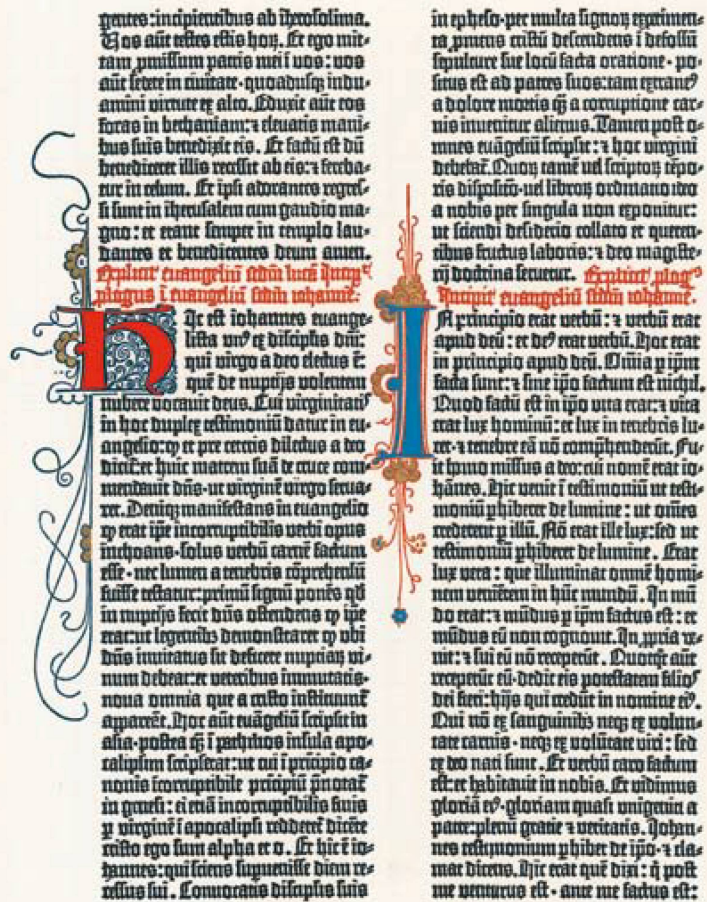 gentes: incipientibus ab iherosolima.
Vos aūt testes estis hoꝝ. Et ego mit-
tam ꝓmissum patris mei ī vos: vos
aūt sedete in civitate. quoadusqꝫ indu-
amini virtute ex alto. Eduxit aūt eos
foras in bethaniam: ⁊ elevatis mani-
bus suis benedixit eis. Et factū est dū
benediceret illis recessit ab eis: ⁊ fereba-
tur in celum. Et ipsi adorantes regres-
si sunt in iherusalem cum gaudio ma-
gno: et erant semper in templo lau-
dantes et benedicentes deum amen.
Explicit euangeliū scdm lucā Incipᵗ
prologus ī euangeliū scdm iohanne:
Hic est iohannes euange-
lista unꝰ ex discipl̄is dn̄i:
qui virgo a deo electus ē:
quē de nuptijs volentem
nubere vocavit deus. Cui virginitatꝭ
in hoc duplex testimoniū datur in eu-
angelio: ꝙ et pre ceteris dilectus a deo
dicit̄: et huic matrem suā de cruce com-
mendavit dn̄s. ut virginē virgo serua-
ret. Deniqꝫ manifestans in euangelio
ꝙ erat ip̄e incorruptibilis verbi opus
inchoans. solus verbū carnē factum
esse. nec lumen a tenebris cōprehensū
fuisse testatur: primū signū ponēs qd̄
in nuptijs fecit dn̄s ostendens ꝙ ip̄e
erat: ut legentibꝫ demonstraret ꝙ ubi
dn̄s invitatus sit deficere nuptiaꝝ vi-
num debeat: et veteribus immutatis.
nova omnia que a cristo instituunt̄
appareāt. Hoc aūt euāgeliū scripsit in
asia. postea qͣ̄ ī pathmos insula apo-
calipsim scripserat: ut cui ī prīcipio ca-
nonis īcorruptibile prīcipiū p̄notat̄
in genesi: ei etiā incorruptibilis finis
p̱ virginē ī apocalipsi redderet̄ dicēte
cristo ego sum alpha et o. Et hic ē io-
hannes: qui sciens supervenisse diem re-
cessus sui. Convocatis discipulis suis
in epheso. per multa signoꝝ experimen-
ta ꝓmens cristū descendens ī defossū
sepulture sue locū facta oratione. po-
situs est ad patres suos: tam extraneꝰ
a dolore mortis qͣ̄ a corruptione car-
nis invenitur alienus. Tamen post o-
mnes euāgeliū scripsit: ⁊ hoc virgini
debebat̄. Quoꝝ tamē vel scriptoꝝ tēpo-
ris dispositio. vel libroꝝ ordinatio ideo
a nobis per singula non exponitur:
ut sciendi desiderio collato et queren-
tibus fructus laboris: ⁊ deo magiste-
rij doctrina seruetur. Explicit plogꝰ
Incipit euangeliū scdm iohanne.
In principio erat verbū: ⁊ verbū erat
apud deū: et deꝰ erat verbū. Hoc erat
in principio apud deū. Om̄ia p̱ ip̄m
facta sunt: ⁊ sine ip̄o factum est nichil.
Quod factū est in ip̄o vita erat: ⁊ vita
erat lux hominū: et lux in tenebris lu-
cet. ⁊ tenebre eā nō comp̱henderūt. Fu-
it homo missus a deo: cui nomē erat io-
hānes. Hic venit ī testimoniū ut testi-
moniū p̱hiberet de lumine: ut om̄es
crederent p̱ illū. Nō erat ille lux: sed ut
testimoniū p̱hiberet de lumine. Erat
lux vera: que illuminat omnē homi-
nem veniētem in hūc mundū. In mū-
do erat: ⁊ mūdus p̱ ip̄m factus est: et
mūdus eū non cognovit. In ꝓpria ve-
nit: ⁊ sui eū nō receperūt. Quotqt̄ aūt
receperūt eū. dedit eis potestatem filioꝰ
dei fieri: hijs qui credūt in nomine eiꝰ.
Qui nō ex sanguinibꝫ neqꝫ ex volun-
tate carnis. neqꝫ ex volūtate viri: sed
ex deo nati sunt. Et verbū caro factum
est: et habitavit in nobis. Et vidimus
gloriā eiꝰ. gloriam quasi unigeniti a
patre: plenū gratie ⁊ veritatis. Iohan-
nes testimonium p̱hibet de ip̄o. ⁊ cla-
mat dicens. Hic erat quē dixi: q̇ post
me venturus est. ante me factus est: